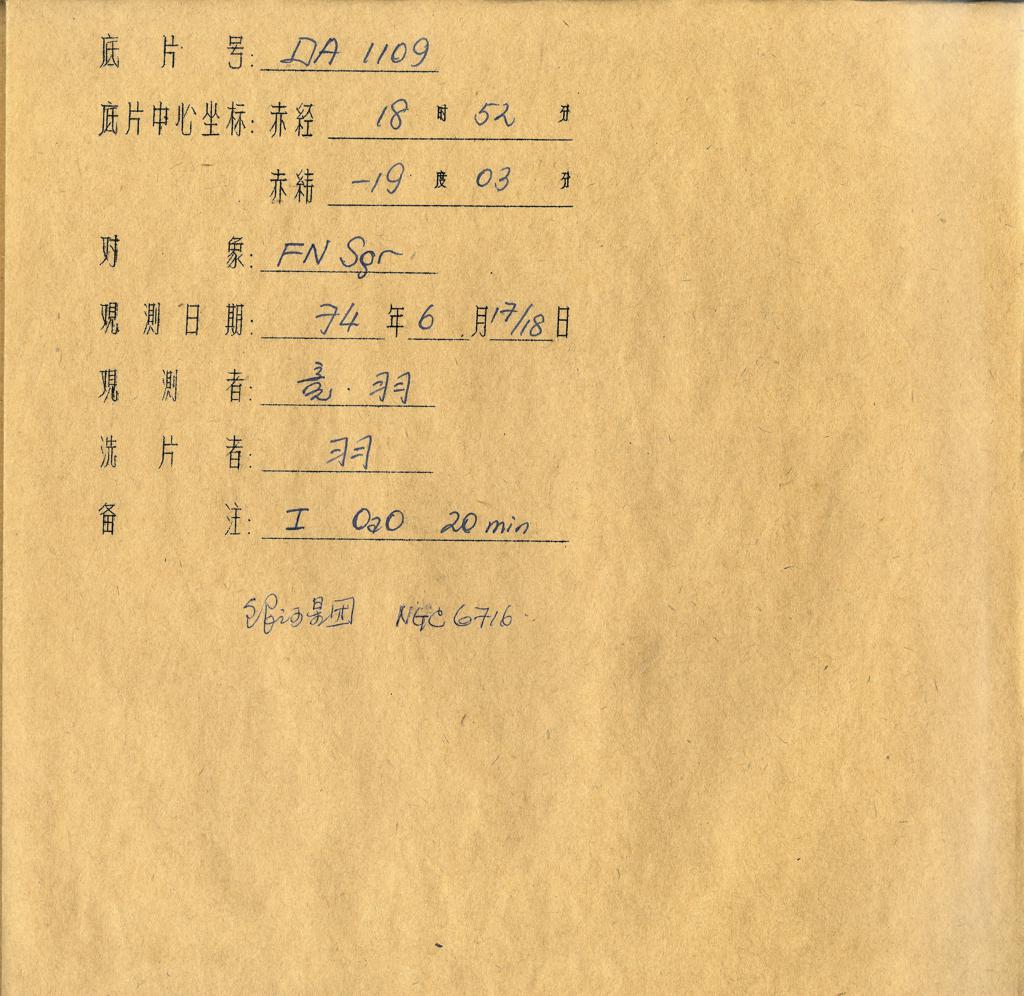 底片号: DA 1109
底片中心坐标: 赤经 18 时 52 分
赤纬 -19 度 03 分
对象: FN Sgr
观测日期: 74 年 6 月 17/18 日
观测者: 亮·羽
洗片者: 羽
备注: I OaO 20 min
银河星团 NGC 6716